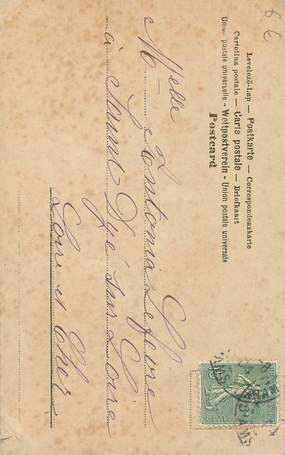 Levelező-Lap — Postkarte — Correspondenzkarte
Cartolina postale — Carte postale — Briefkaart
Union postale universelle - Weltpostverein - Union postale universale
Postcard
Melle
Antonia Lefèvre
à Saint Dyé sur Loire
Loir et Cher